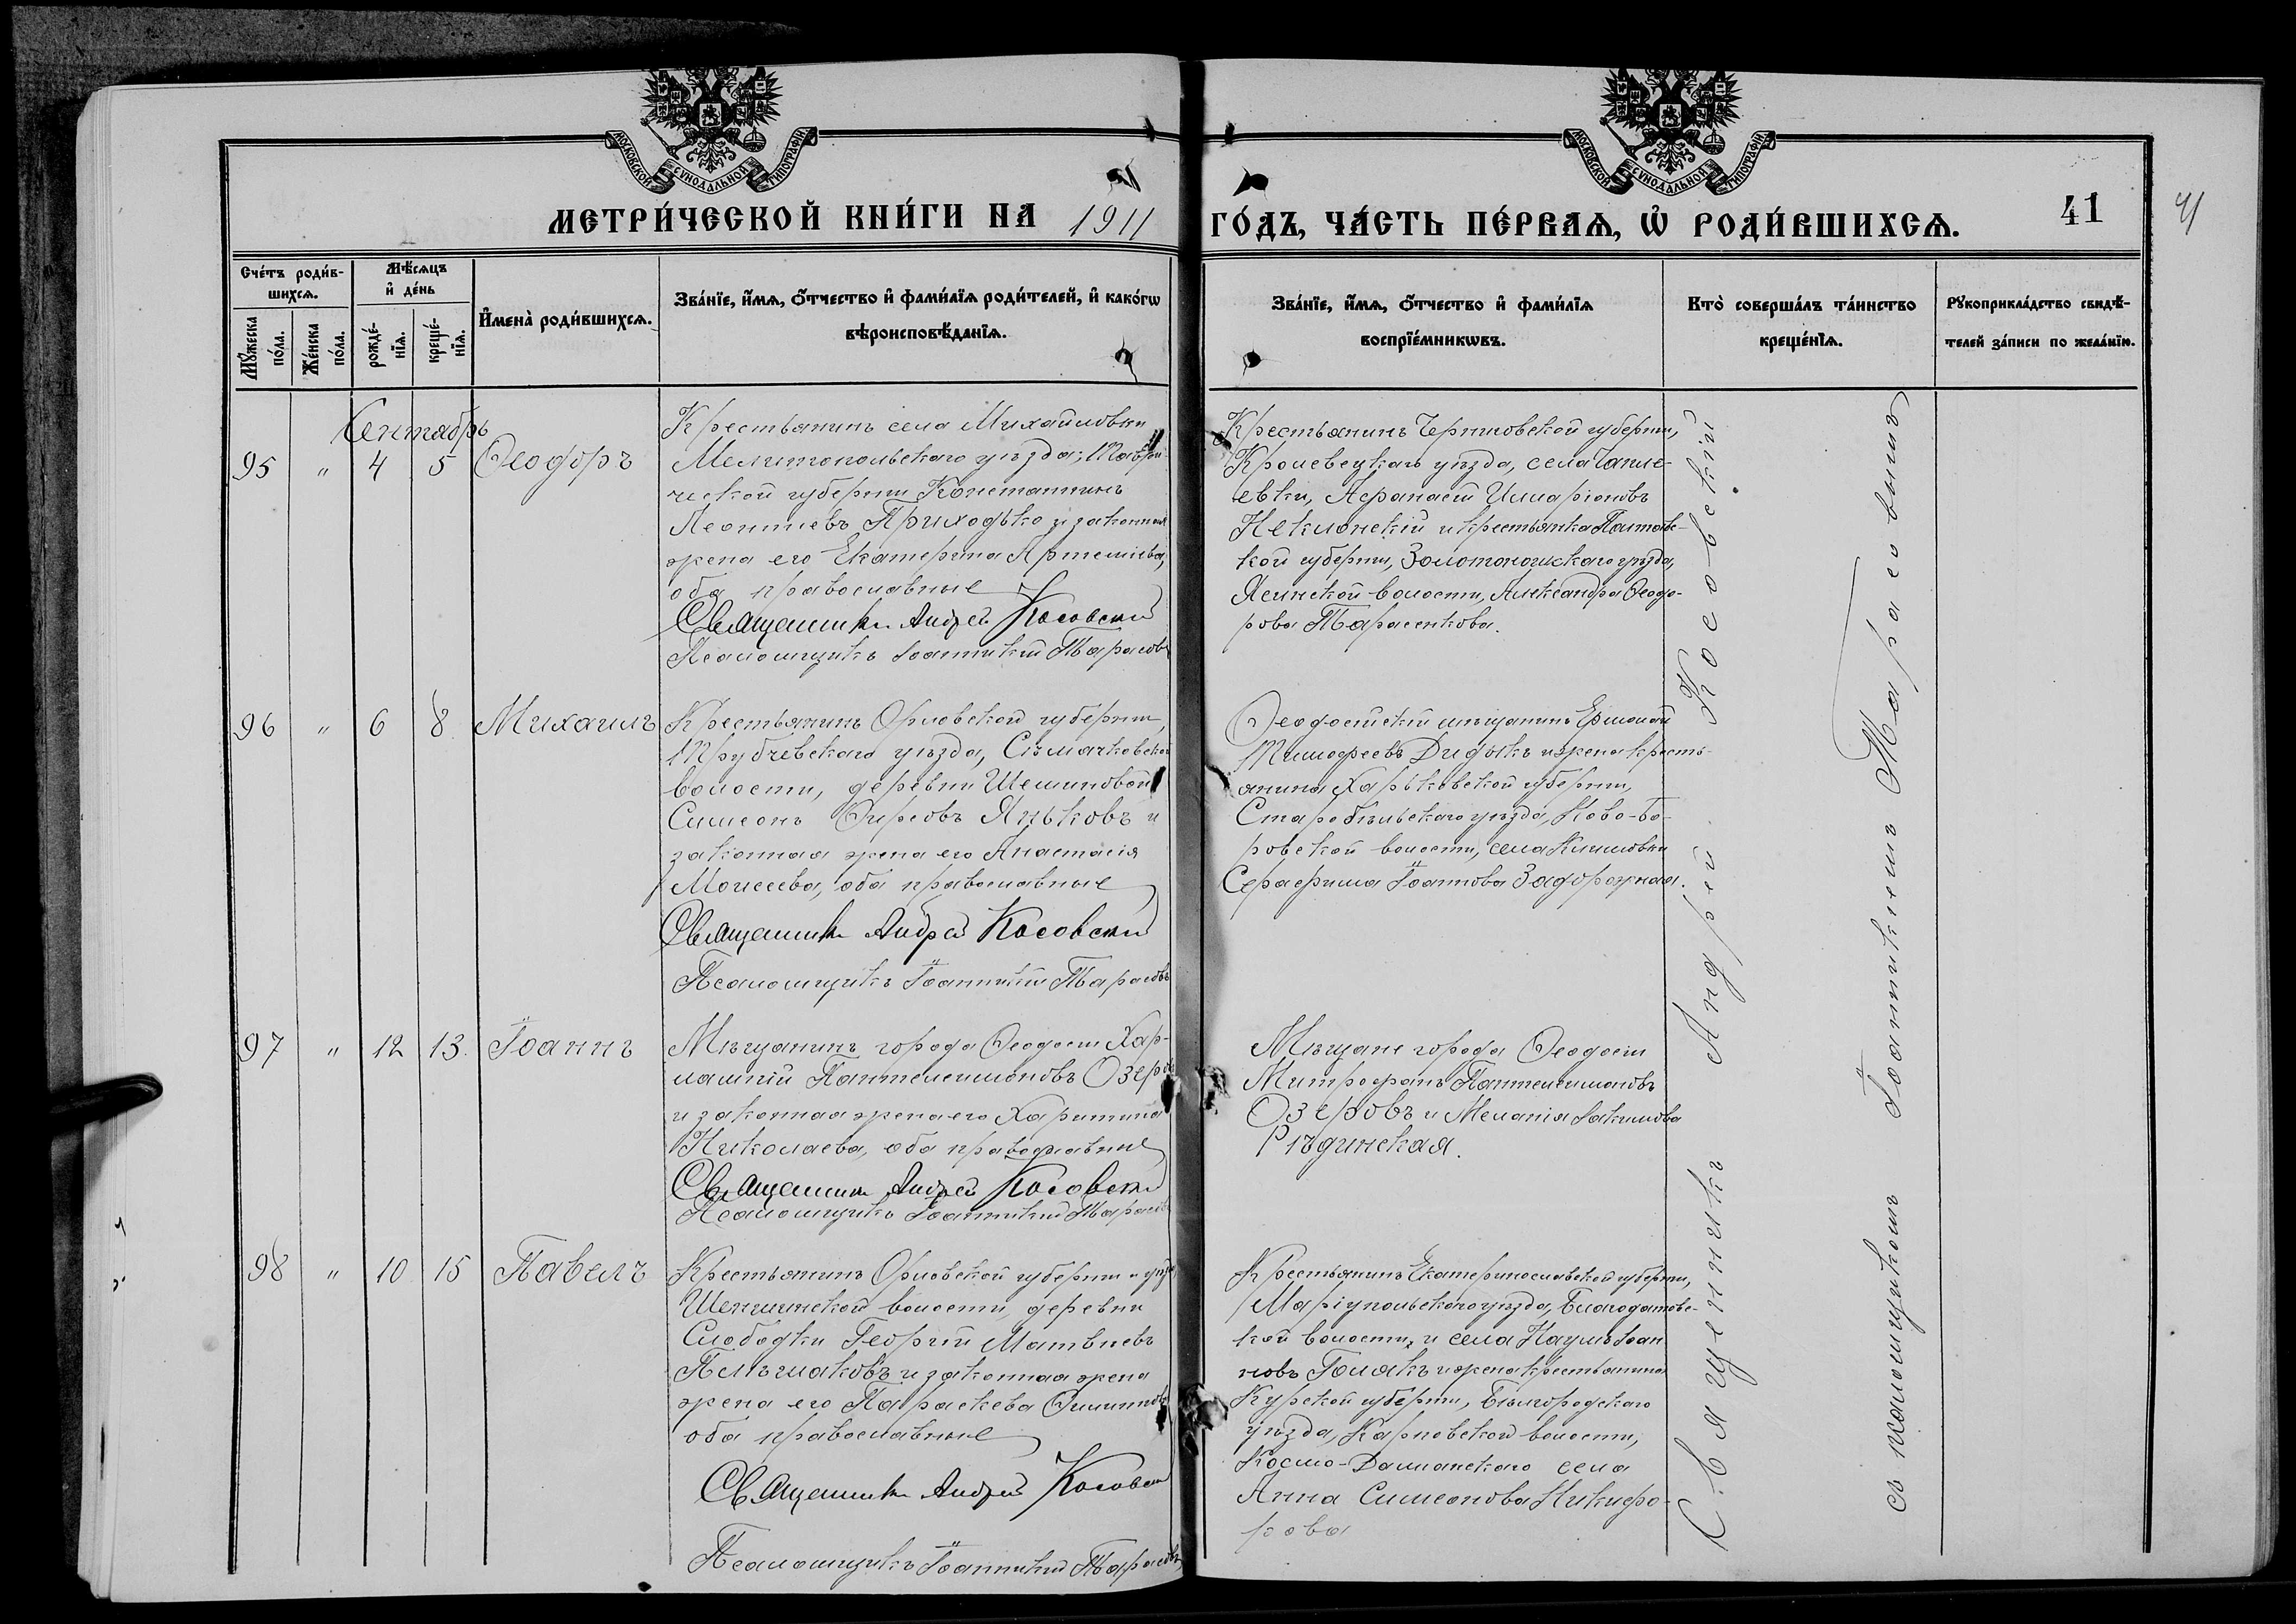 МОСКОВСКОЙ СѴНОДАЛЬНОЙ ТИПОГРАФІИ
МОСКОВСКОЙ СѴНОДАЛЬНОЙ ТИПОГРАФІИ
МЕТРИ́ЧЕСКОЙ КНИ́ГИ НА 1911 ГО́ДЪ, ЧА́СТЬ ПЕ́РВАѦ, Ѡ҆ РОДИ́ВШИХСѦ.
41
41
Сче́тъ роди́в-
шихсѧ.
Мꙋ́жеска
по́ла.
Же́нска
по́ла.
Мѣ́сѧцъ
и҆ де́нь
рожде́-
нїѧ.
креще́-
нїѧ.
И҆мена̀ роди́вшихсѧ.
Зва́нїе, и҆́мѧ, ѻ҆́тчество и҆ фами́лїѧ роди́телей, и҆ како́гѡ
вѣроисповѣ́данїѧ.
Зва́нїе, и҆́мѧ, ѻ҆́тчество и҆ фами́лїѧ
воспрїе́мникѡвъ.
Кто̀ соверша́лъ та́инство
креще́нїѧ.
Рꙋкоприкла́дство свидѣ́-
телей за́писи по жела́нїю.
Сентябрь
95 " 4 5 Ѳеодоръ
Крестьянинъ села Михайловки
Мелитопольскаго уѣзда, Таври-
ческой губерніи Константинъ
Леонтіевъ Приходько и законная
жена его Екатерина Артеміева,
оба православные
Священникъ Андрей Косовскій
Псаломщикъ Іоанникій Тарасовъ
Крестьянинъ Черниговской губерніи,
Кролевецкаго уѣзда, села
евки, Аѳанасій Иларіоновъ
и крестьянка Полтавс-
кой губерніи, Золотоношскаго уѣзда,
волости, Александра Ѳеодо-
рова Тарасенкова.
96 " 6 8 Михаилъ
Крестьянинъ Орловской губерніи,
Трубчевскаго уѣзда,
волости, деревни
Симеонъ Яньковъ и
законная жена его Анастасія
Моисеева, оба православные
Священникъ Андрей Косовскій
Псаломщикъ Іоанникій Тарасовъ
Ѳеодосійскій мѣщанинъ Ермолай
Тимоѳеевъ Дидыкъ и жена кресть-
янина Харьковской губерніи,
Старобѣльскаго уѣзда, Ново-Бо-
ровской волости, села Климовки
Серафима Іоаннова Задорожная.
97 " 12 13. Іоаннъ
Мѣщанинъ города Ѳеодосіи Хар-
лампій Пантелеимоновъ Озеровъ
и законная жена его Харитина
Николаева, оба православные
Священникъ Андрей Косовскій
Псаломщикъ Іоанникій Тарасовъ
Мѣщане города Ѳеодосіи
Митрофанъ Пантелеимоновъ
Озеровъ и Меланія Іакимова
Рѣдинская.
98 " 10 15 Павелъ
Крестьянинъ Орловской губерніи и уѣзда
волости, деревни
Слободки Георгій Матвѣевъ
и законная жена
жена его Параскева
оба православные
Священникъ Андрей Косовскій
Псаломщикъ Іоанникій Тарасовъ
Крестьянинъ Екатеринославской губерніи,
Маріупольскаго уѣзда, Благодатовс-
кой волости, и села Наумъ Іоан
новъ Голякъ и жена крестьянина
Курской губерніи, Бѣлгородскаго
уѣзда, Карповской волости,
Космо-Даміанскаго села
Анна Симеонова Никифо-
рова
Священникъ Андрей Косовскій
съ псаломщикомъ Іоанникіемъ Тарасовымъ